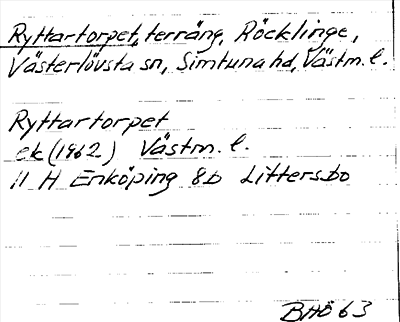 Ryttartorpet, terräng, Röcklinge,
Västerlövsta sn, Simtuna hd, Västm. l.
Ryttartorpet
ek (1962) Västm. l.
11 H Enköping 8b Littersbo
BHÖ 63